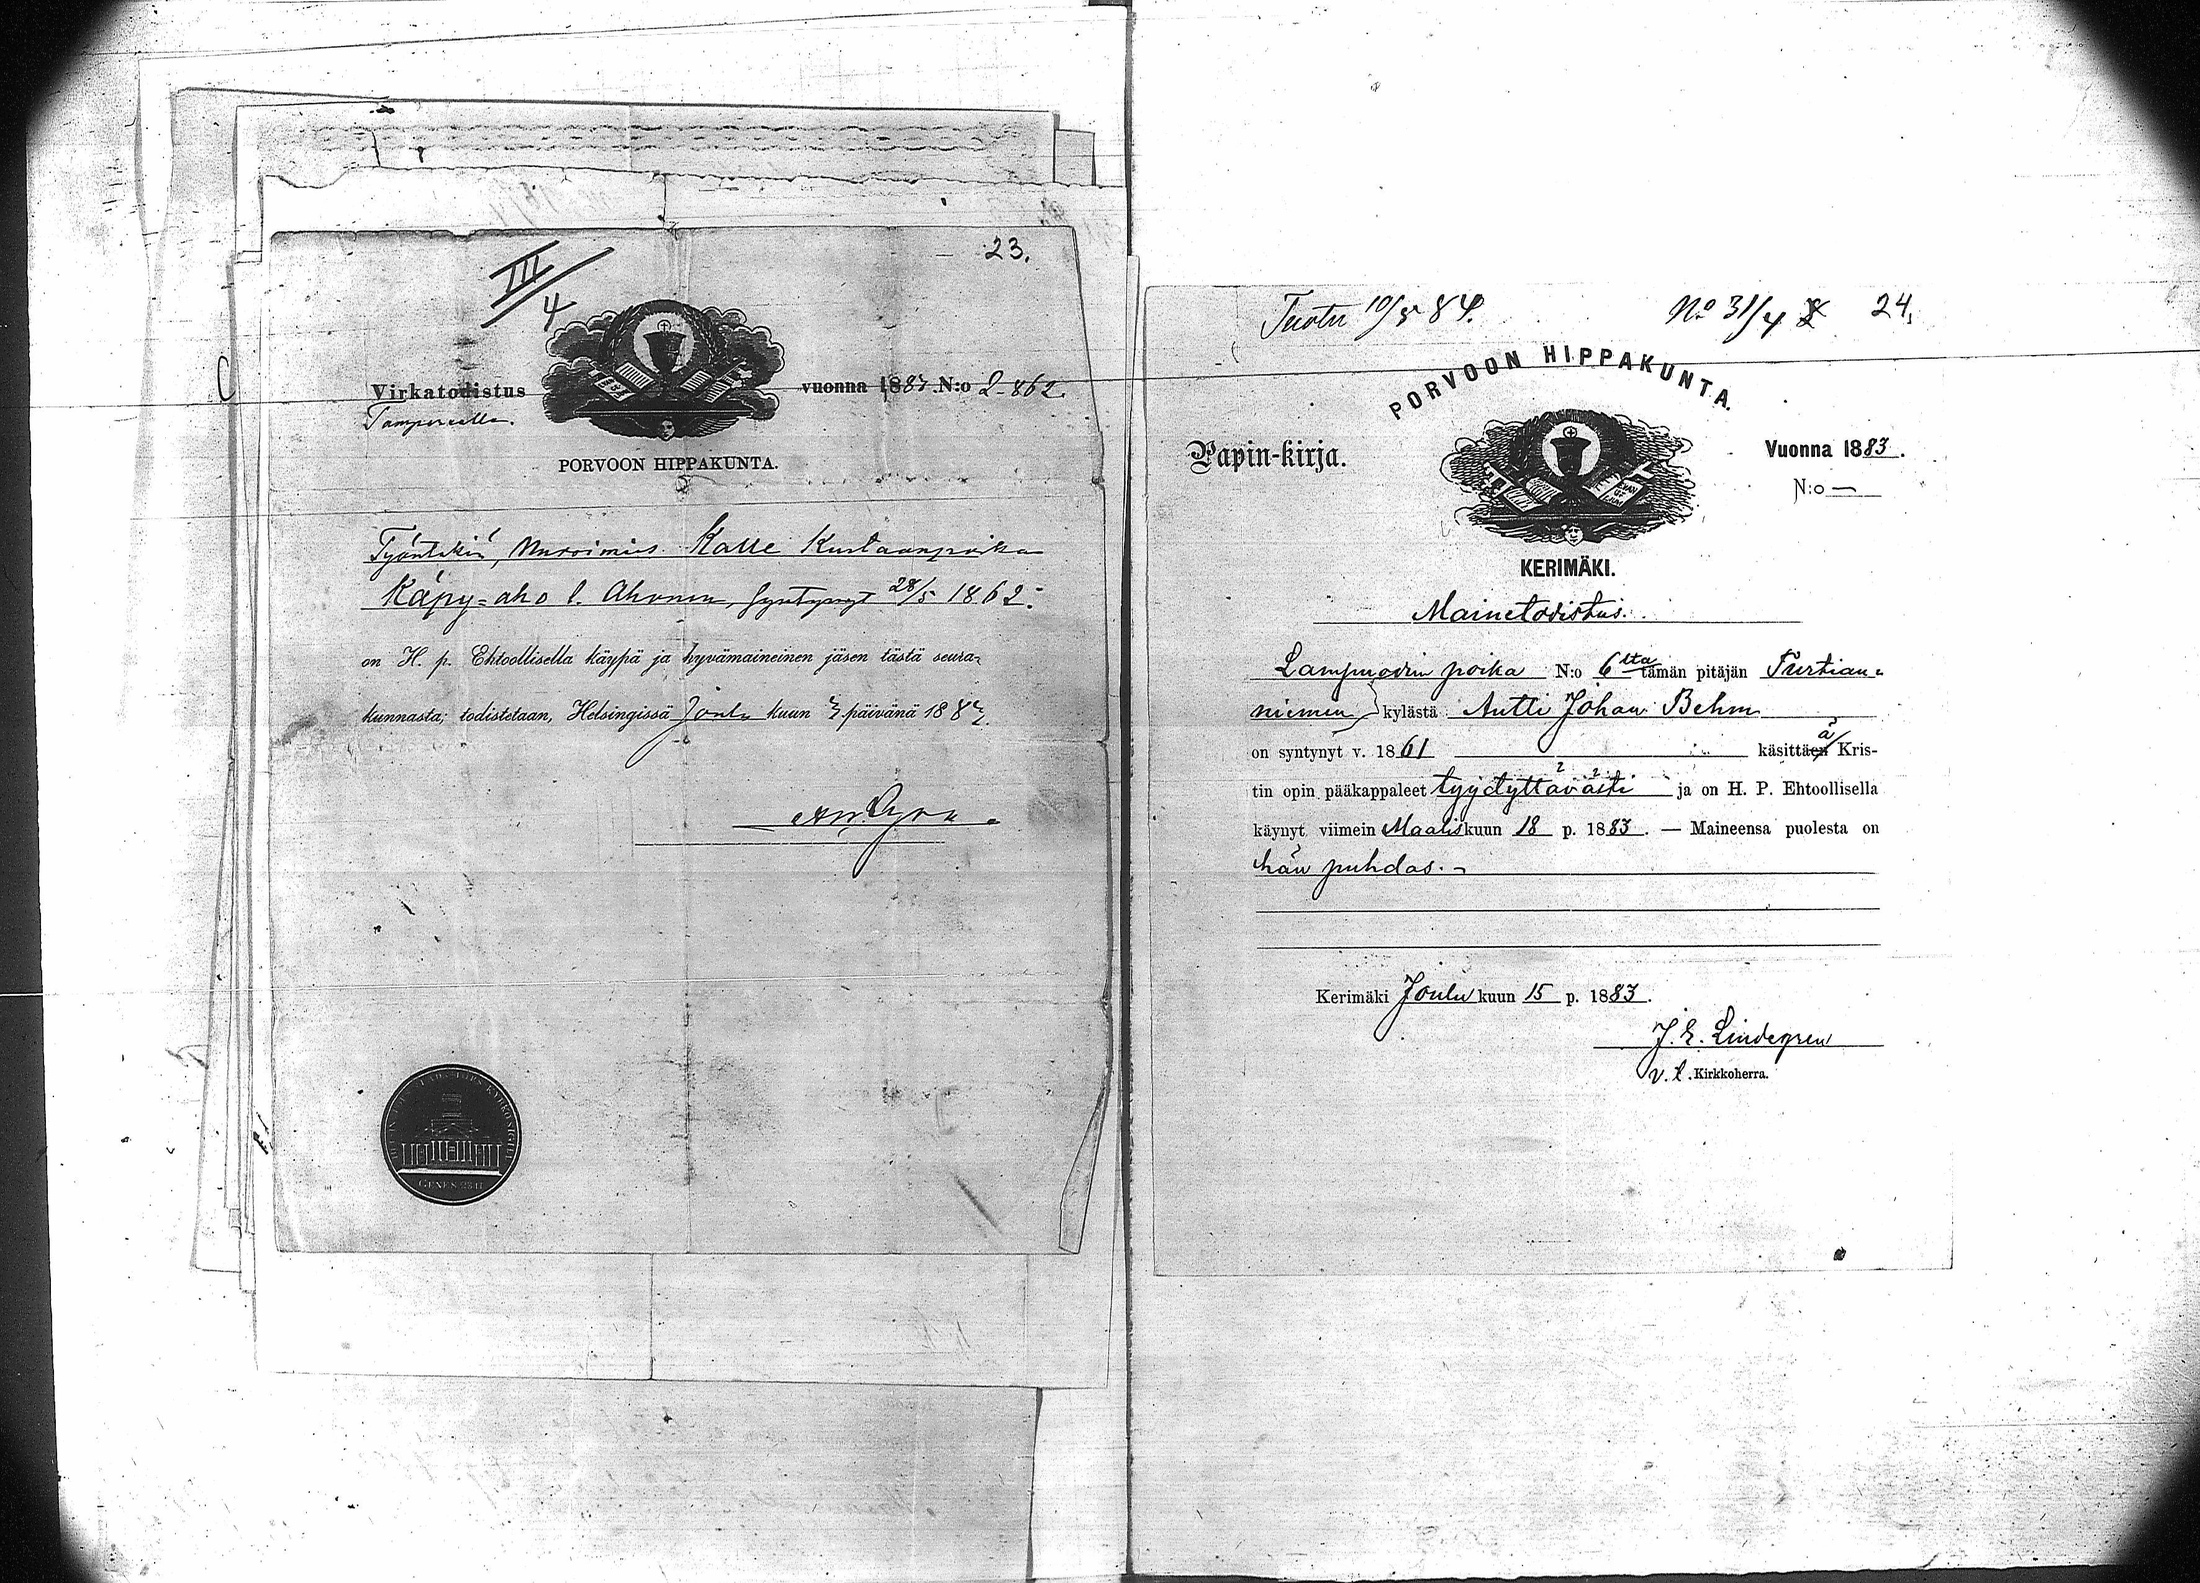 23.
III/4
Virkatodistus vuonna 1883 N:o 2862
Tampereelle.
PORVOON HIPPAKUNTA.
Työntekiä, Nuorimies Kalle Kustaanpoika
Käpy=aho l. Ahonen, syntynyt 28/5 1862:
on H. p. Ehtoollisella käypä ja hyvämaineinen jäsen tästä seura-
kunnasta; todistetaan, Helsingissä Joulu kuun päivänä 188
GENES. 28:17
Tuotu 10/5 84. No 31/4 24.
PORVOON HIPPAKUNTA.
Papin-kirja. Vuonna 1883.
N:o —
KERIMÄKI.
Mainetodistus.
Lampuodin poika N:o 6lta tämän pitäjän Turtian-
niemen kylästä Antti Johan Behm
on syntynyt v. 1861 käsittää Kris-
tin opin pääkappaleet tyydyttäväästi ja on H. P. Ehtoollisella
käynyt viimein Maaliskuun 18 p. 1883. — Maineensa puolesta on
hän puhdas. –
Kerimäki Joulu kuun 15 p. 1883.
J. E. Lindegren
v. t. Kirkkoherra.